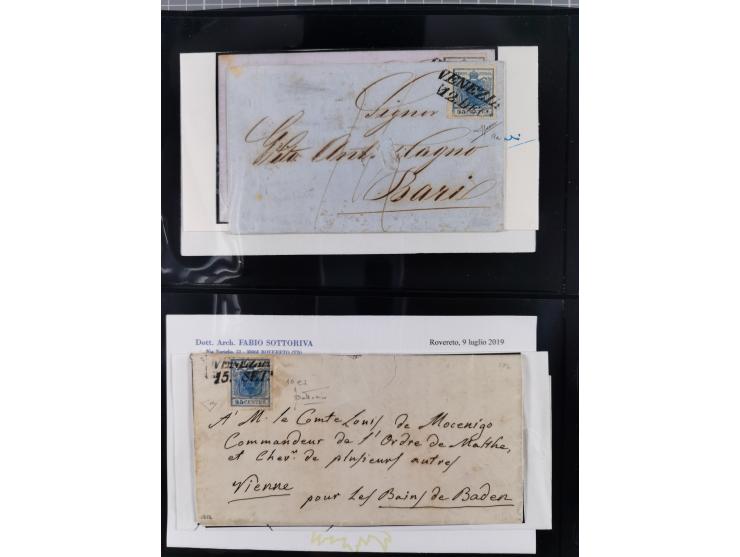 VENEZIA
12. DEC
45 CENTES
Signor
Vito Ant. Magno
Bari
Dott. Arch. FABIO SOTTORIVA
Rovereto, 9 luglio 2019
VENEZIA
15. SET.
45 CENTES
A M. le Comte Louis de Mocenigo
Commandeur de l'Ordre de Malthe,
et Chev.r de plusieurs autres
Vienne
pour les Bains de Baden